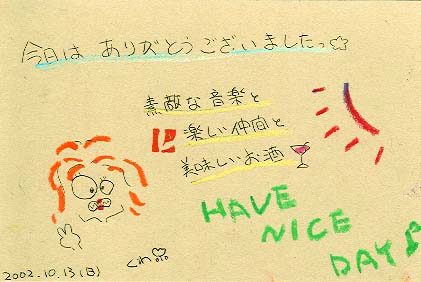 今日は ありがとうございましたっ
素敵な音楽と
楽しい仲間と
美味しいお酒
HAVE
NICE
DAY♪
くわ
2002.10.13(日)